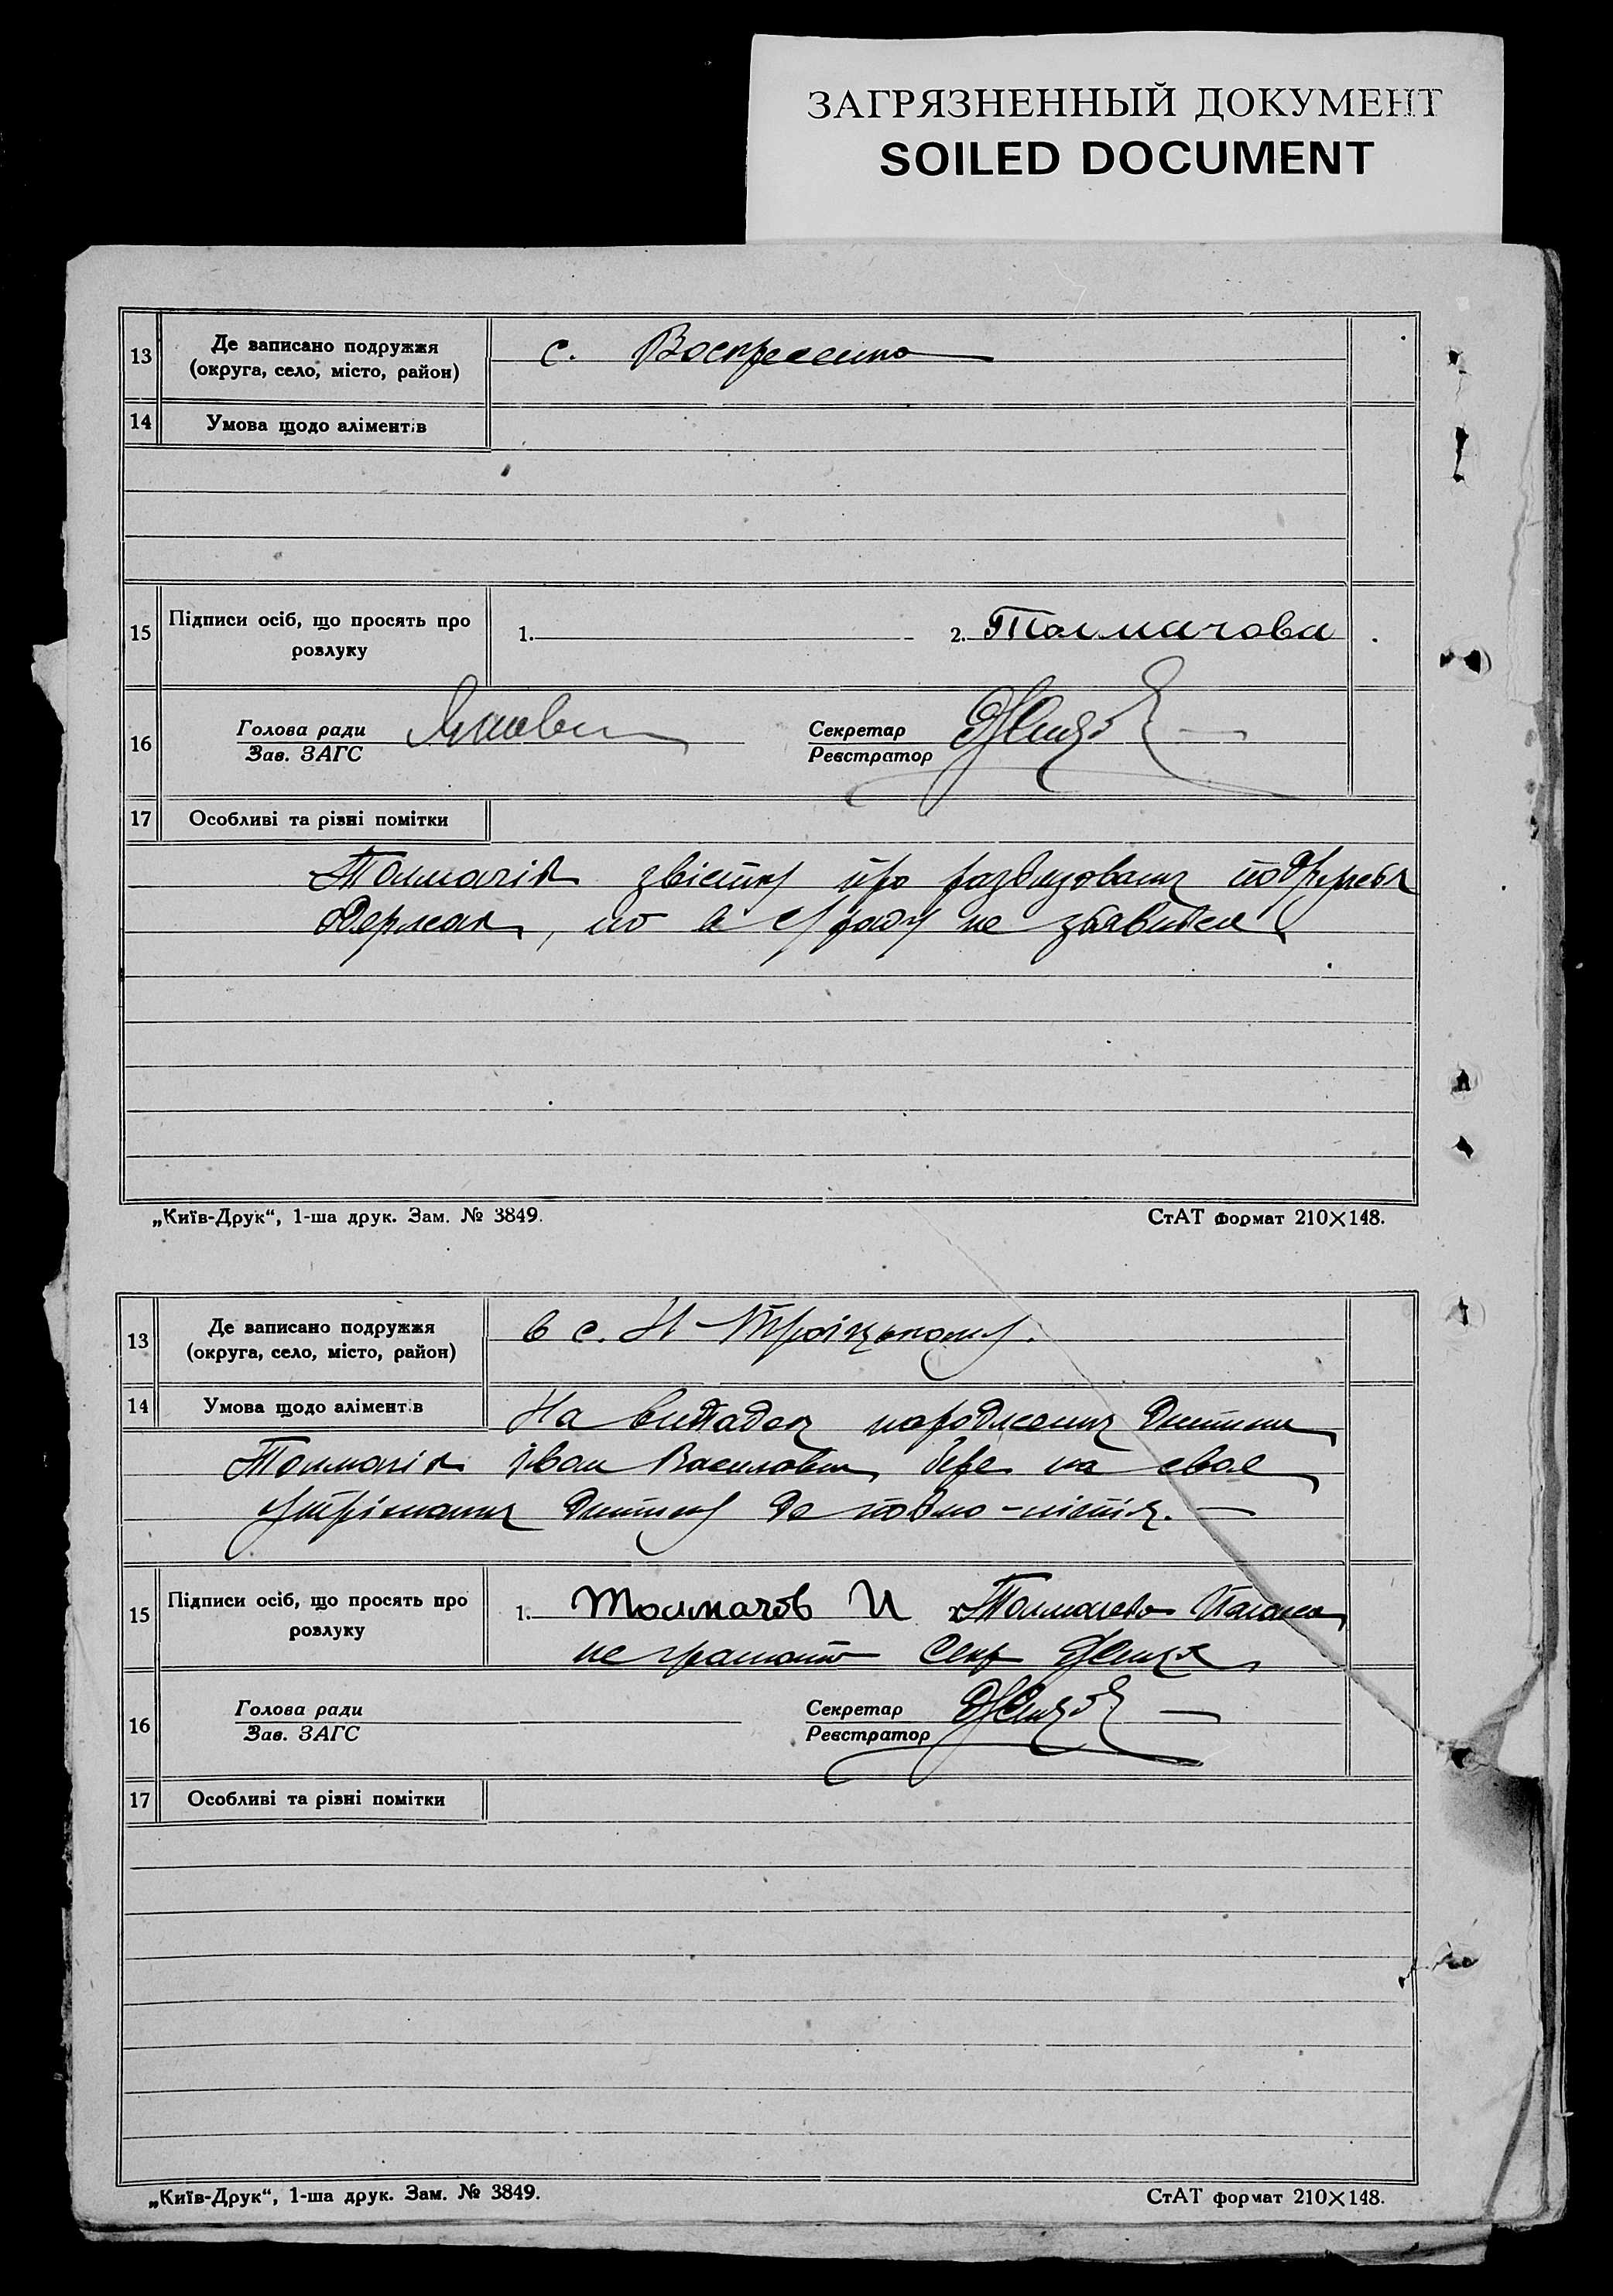 ЗАГРЯЗНЕННЫЙ ДОКУМЕНТ
SOILED DOCUMENT
13 Де записано подружжя
(округа, село, місто, район)
с. Воскресенка
14 Умова щодо аліментів
15 Підписи осіб, що просять про
розлуку
1. 2. Толмачова
16 Голова ради Секретар
Зав. ЗАГС Реєстратор
17 Особливі та різні помітки
Толмачів звістку про
одержав, но в с/раду не зьявився
„Київ-Друк“, 1-ша друк. Зам. № 3849. СтАТ формат 210×148.
13 Де записано подружжя
(округа, село, місто, район)
в с. Н-Троіцькому.
14 Умова щодо аліментів
На випадок народження дитини
Толмачів Іван Василович бере на своє
утрімання дитину до повно-ліття.
15 Підписи осіб, що просять про
розлуку
1. Толмачов И 2. Толмачова
не грамотн Секр
16 Голова ради Секретар
Зав. ЗАГС Реєстратор
17 Особливі та різні помітки
„Київ-Друк“, 1-ша друк. Зам. № 3849. СтАТ формат 210×148.